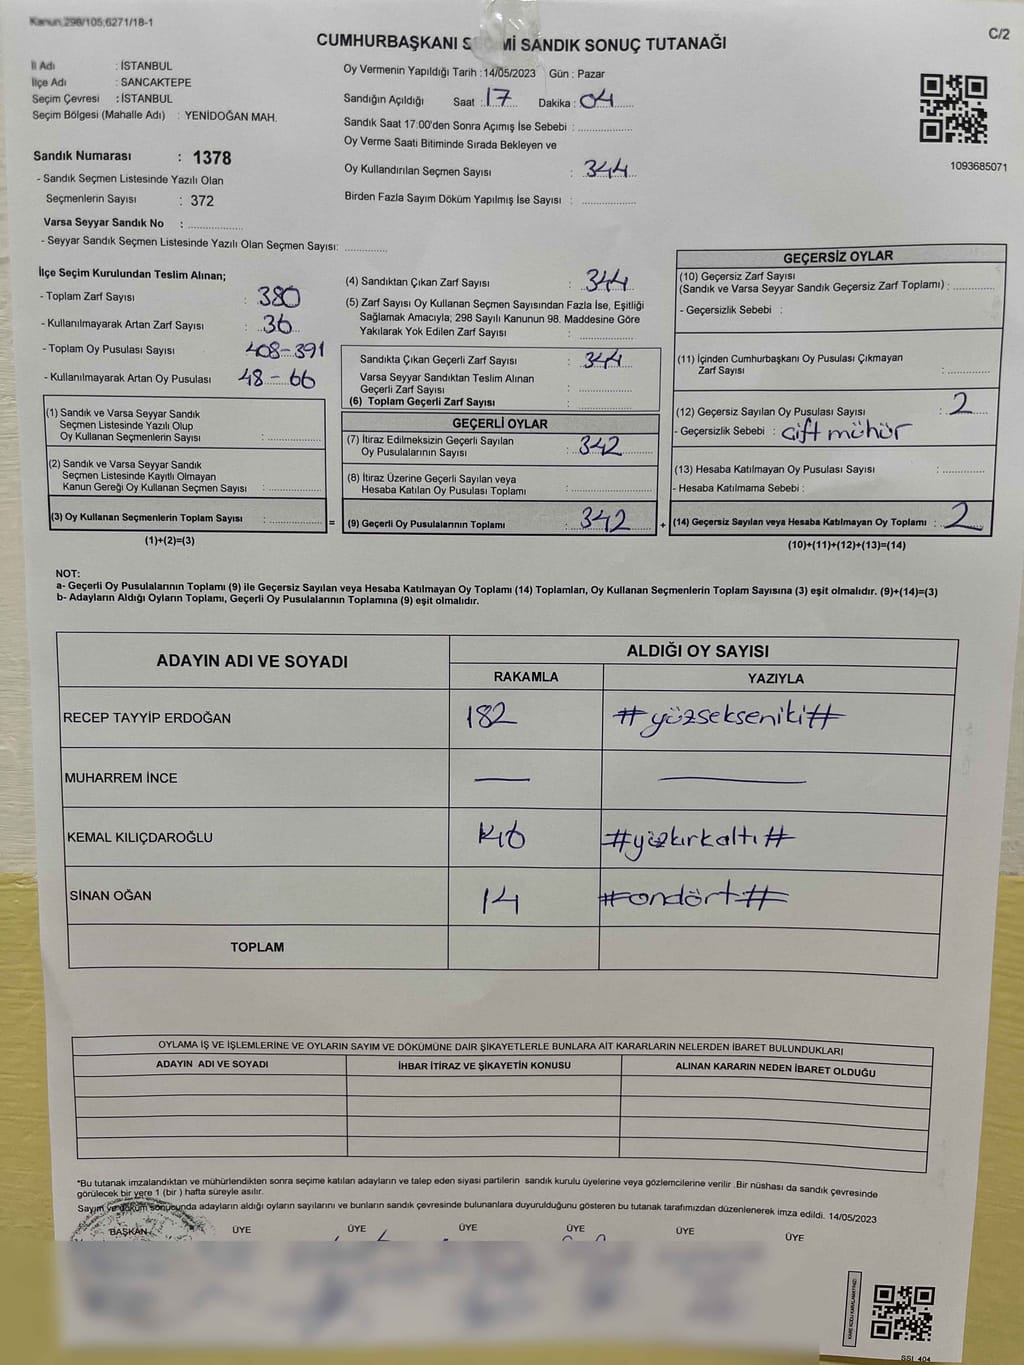 Kanun.298/105,6271/18-1
C/2
CUMHURBAŞKANI S Mİ SANDIK SONUÇ TUTANAĞI
İl Adı : İSTANBUL
İlçe Adı : SANCAKTEPE
Seçim Çevresi : İSTANBUL
Seçim Bölgesi (Mahalle Adı) : YENİDOĞAN MAH.
Sandık Numarası : 1378
- Sandık Seçmen Listesinde Yazılı Olan
Seçmenlerin Sayısı : 372
Varsa Seyyar Sandık No : ..................
- Seyyar Sandık Seçmen Listesinde Yazılı Olan Seçmen Sayısı: .............
Oy Vermenin Yapıldığı Tarih : 14/05/2023 Gün : Pazar
Sandığın Açıldığı Saat : 17 Dakika : 04
Sandık Saat 17:00'den Sonra Açımış İse Sebebi : ..................
Oy Verme Saati Bitiminde Sırada Bekleyen ve
Oy Kullandırılan Seçmen Sayısı : 344
Birden Fazla Sayım Döküm Yapılmış İse Sayısı : ..................
1093685071
İlçe Seçim Kurulundan Teslim Alınan;
- Toplam Zarf Sayısı : 380
- Kullanılmayarak Artan Zarf Sayısı : 36
- Toplam Oy Pusulası Sayısı 408-391
- Kullanılmayarak Artan Oy Pusulası 48-66
(1) Sandık ve Varsa Seyyar Sandık
Seçmen Listesinde Yazılı Olup
Oy Kullanan Seçmenlerin Sayısı : ..................
(2) Sandık ve Varsa Seyyar Sandık
Seçmen Listesinde Kayıtlı Olmayan
Kanun Gereği Oy Kullanan Seçmen Sayısı : ..................
(3) Oy Kullanan Seçmenlerin Toplam Sayısı : ..................
(1)+(2)=(3)
=
(4) Sandıktan Çıkan Zarf Sayısı : 344
(5) Zarf Sayısı Oy Kullanan Seçmen Sayısından Fazla İse, Eşitliği
Sağlamak Amacıyla; 298 Sayılı Kanunun 98. Maddesine Göre
Yakılarak Yok Edilen Zarf Sayısı : ..................
Sandıkta Çıkan Geçerli Zarf Sayısı : 344
Varsa Seyyar Sandıktan Teslim Alınan
Geçerli Zarf Sayısı : ..................
(6) Toplam Geçerli Zarf Sayısı : ..................
GEÇERLİ OYLAR
(7) İtiraz Edilmeksizin Geçerli Sayılan
Oy Pusulalarının Sayısı : 342
(8) İtiraz Üzerine Geçerli Sayılan veya
Hesaba Katılan Oy Pusulası Toplamı : ..................
(9) Geçerli Oy Pusulalarının Toplamı : 342
+
GEÇERSİZ OYLAR
(10) Geçersiz Zarf Sayısı
(Sandık ve Varsa Seyyar Sandık Geçersiz Zarf Toplamı) : .............
- Geçersizlik Sebebi :
(11) İçinden Cumhurbaşkanı Oy Pusulası Çıkmayan
Zarf Sayısı : .............
(12) Geçersiz Sayılan Oy Pusulası Sayısı : 2
- Geçersizlik Sebebi : çift mühür
(13) Hesaba Katılmayan Oy Pusulası Sayısı : .............
- Hesaba Katılmama Sebebi :
(14) Geçersiz Sayılan veya Hesaba Katılmayan Oy Toplamı : 2
(10)+(11)+(12)+(13)=(14)
NOT:
a- Geçerli Oy Pusulalarının Toplamı (9) ile Geçersiz Sayılan veya Hesaba Katılmayan Oy Toplamı (14) Toplamları, Oy Kullanan Seçmenlerin Toplam Sayısına (3) eşit olmalıdır. (9)+(14)=(3)
b- Adayların Aldığı Oyların Toplamı, Geçerli Oy Pusulalarının Toplamına (9) eşit olmalıdır.
ADAYIN ADI VE SOYADI
ALDIĞI OY SAYISI
RAKAMLA YAZIYLA
RECEP TAYYİP ERDOĞAN 182 #yüzsekseniki#
MUHARREM İNCE — —
KEMAL KILIÇDAROĞLU 146 #yüzkırkaltı#
SİNAN OĞAN 14 #ondört#
TOPLAM
OYLAMA İŞ VE İŞLEMLERİNE VE OYLARIN SAYIM VE DÖKÜMÜNE DAİR ŞİKAYETLERLE BUNLARA AİT KARARLARIN NELERDEN İBARET BULUNDUKLARI
ADAYIN ADI VE SOYADI İHBAR İTİRAZ VE ŞİKAYETİN KONUSU ALINAN KARARIN NEDEN İBARET OLDUĞU
*Bu tutanak imzalandıktan ve mühürlendikten sonra seçime katılan adayların ve talep eden siyasi partilerin sandık kurulu üyelerine veya gözlemcilerine verilir .Bir nüshası da sandık çevresinde
görülecek bir yere 1 (bir ) hafta süreyle asılır.
Sayım ve döküm sonucunda adayların aldığı oyların sayılarını ve bunların sandık çevresinde bulunanlara duyurulduğunu gösteren bu tutanak tarafımızdan düzenlenerek imza edildi. 14/05/2023
BAŞKAN ÜYE ÜYE ÜYE ÜYE ÜYE ÜYE
KARE KODU KARALAMAYINIZ!
SSI 404